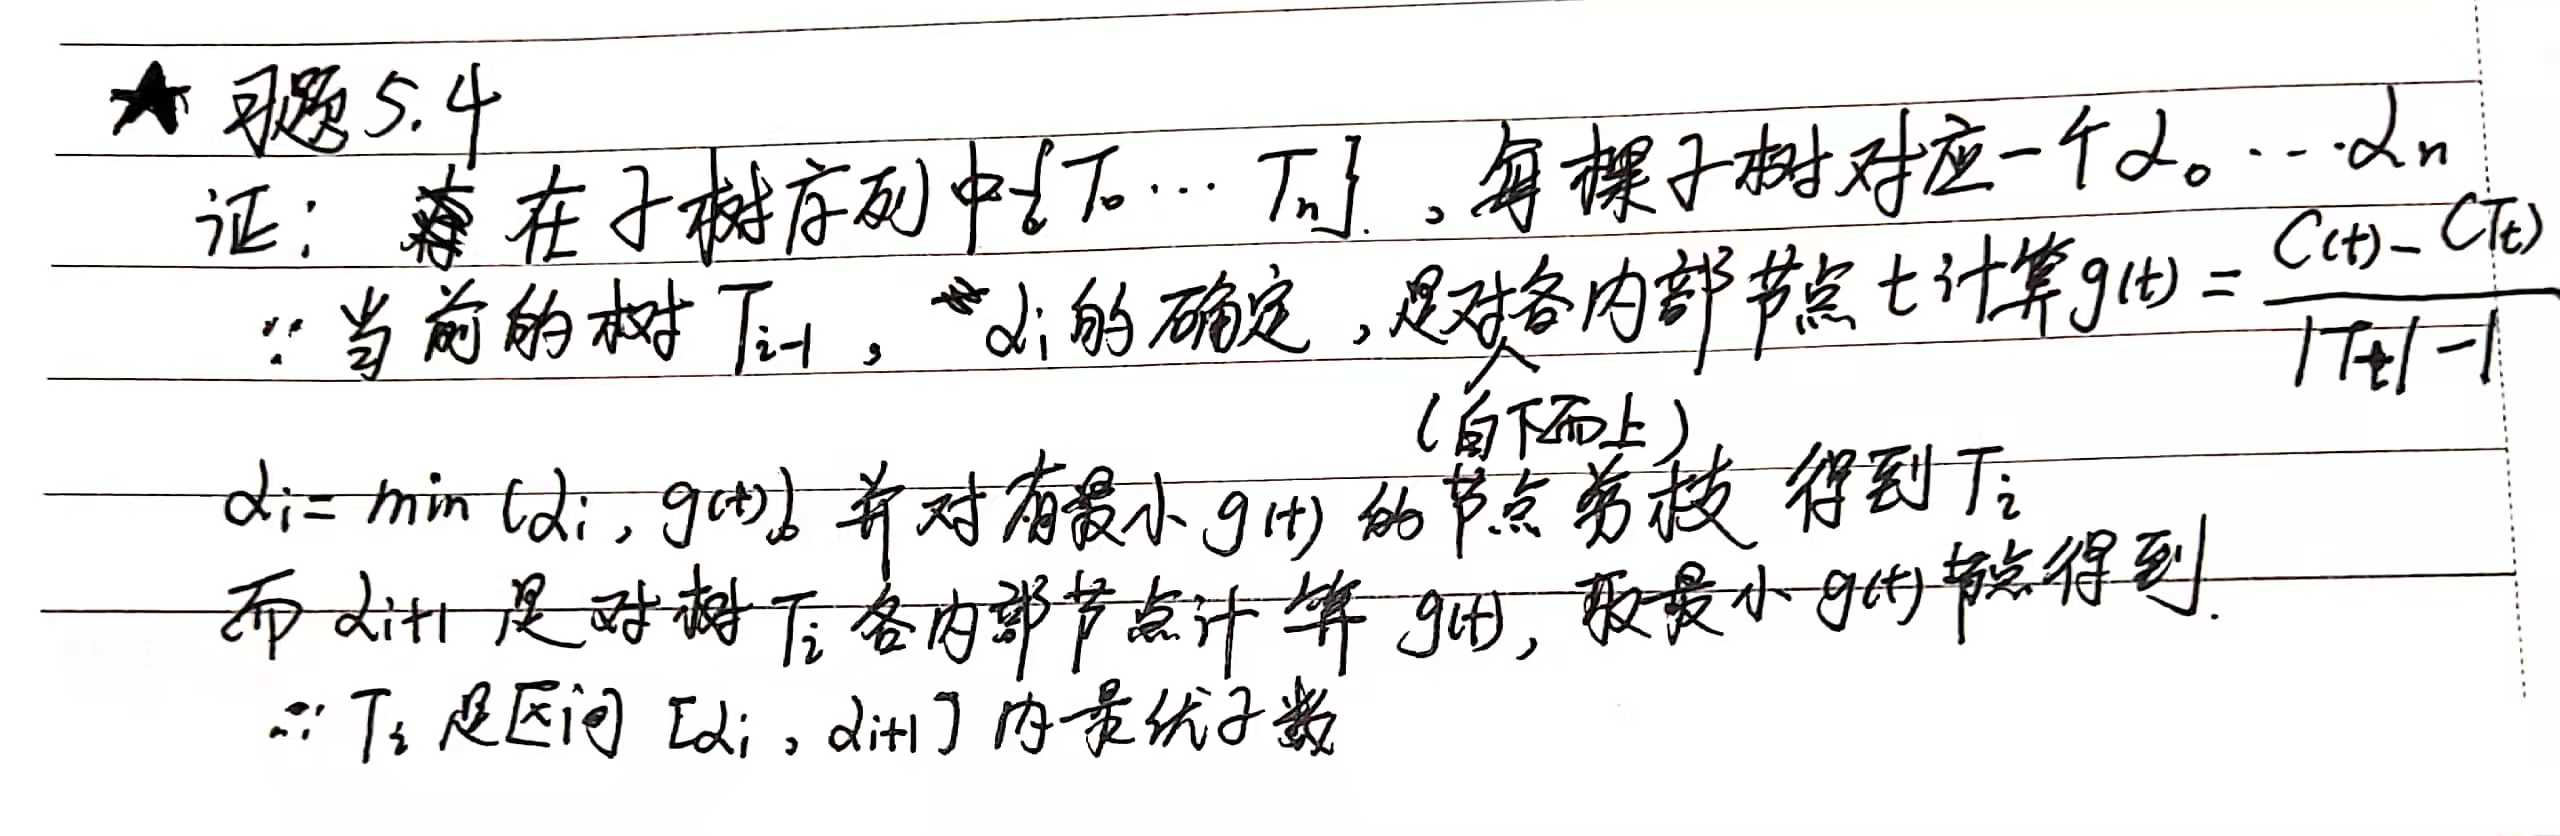 ★ 习题5.4
证: 在子树序列中{T₀ ... Tₙ}, 每棵子树对应一个α₀ ... αₙ
∵ 当前的树 Tᵢ₋₁, αᵢ的确定, 是对各内部节点 t 计算g(t) = (C(t) - C(Tₜ)) / (|Tₜ| - 1)
(自下而上)
αᵢ = min (αᵢ, g(t)), 并对有最小 g(t) 的节点剪枝 得到 Tᵢ
而 αᵢ₊₁ 是对树 Tᵢ 各内部节点计算 g(t), 取最小 g(t) 节点得到.
∴ Tᵢ 是区间 [αᵢ, αᵢ₊₁] 内最优子数